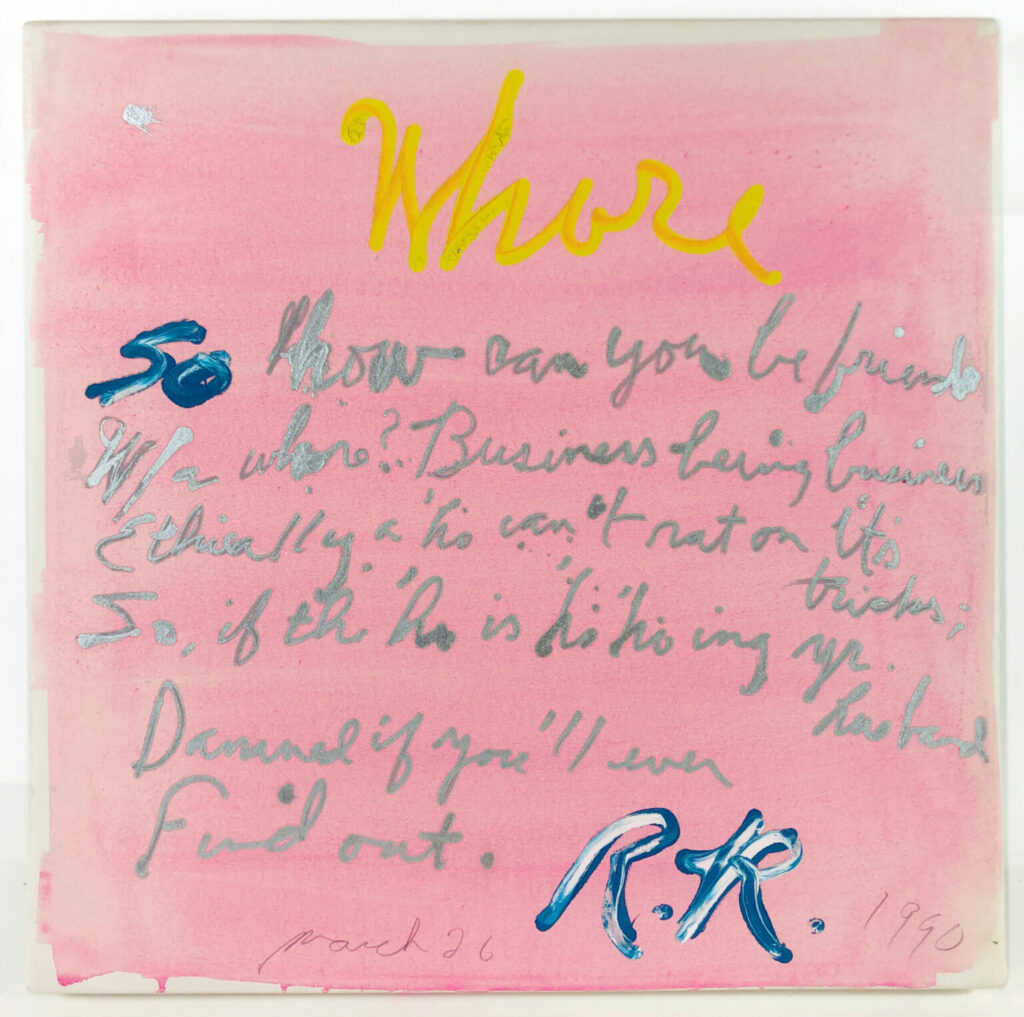 Whore
So how can you be friends
W/a whore? Business being business
Ethically a 'ho can't rat on it's
tricks;
So, if the 'ho is 'ho'ho ing yr.
husband
Damned if you'll ever
Find out.
R.R.
march 26 1990